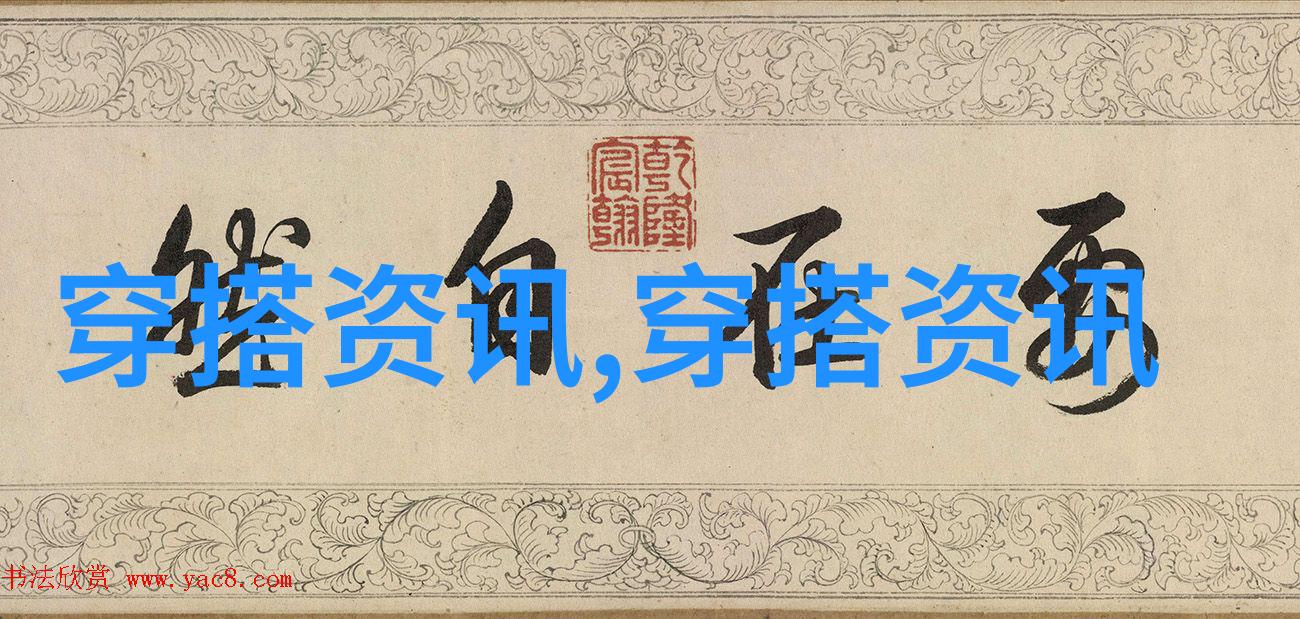 乾隆宸翰
自然
穿搭资讯,穿搭资讯
书法欣赏 www.yac8.com